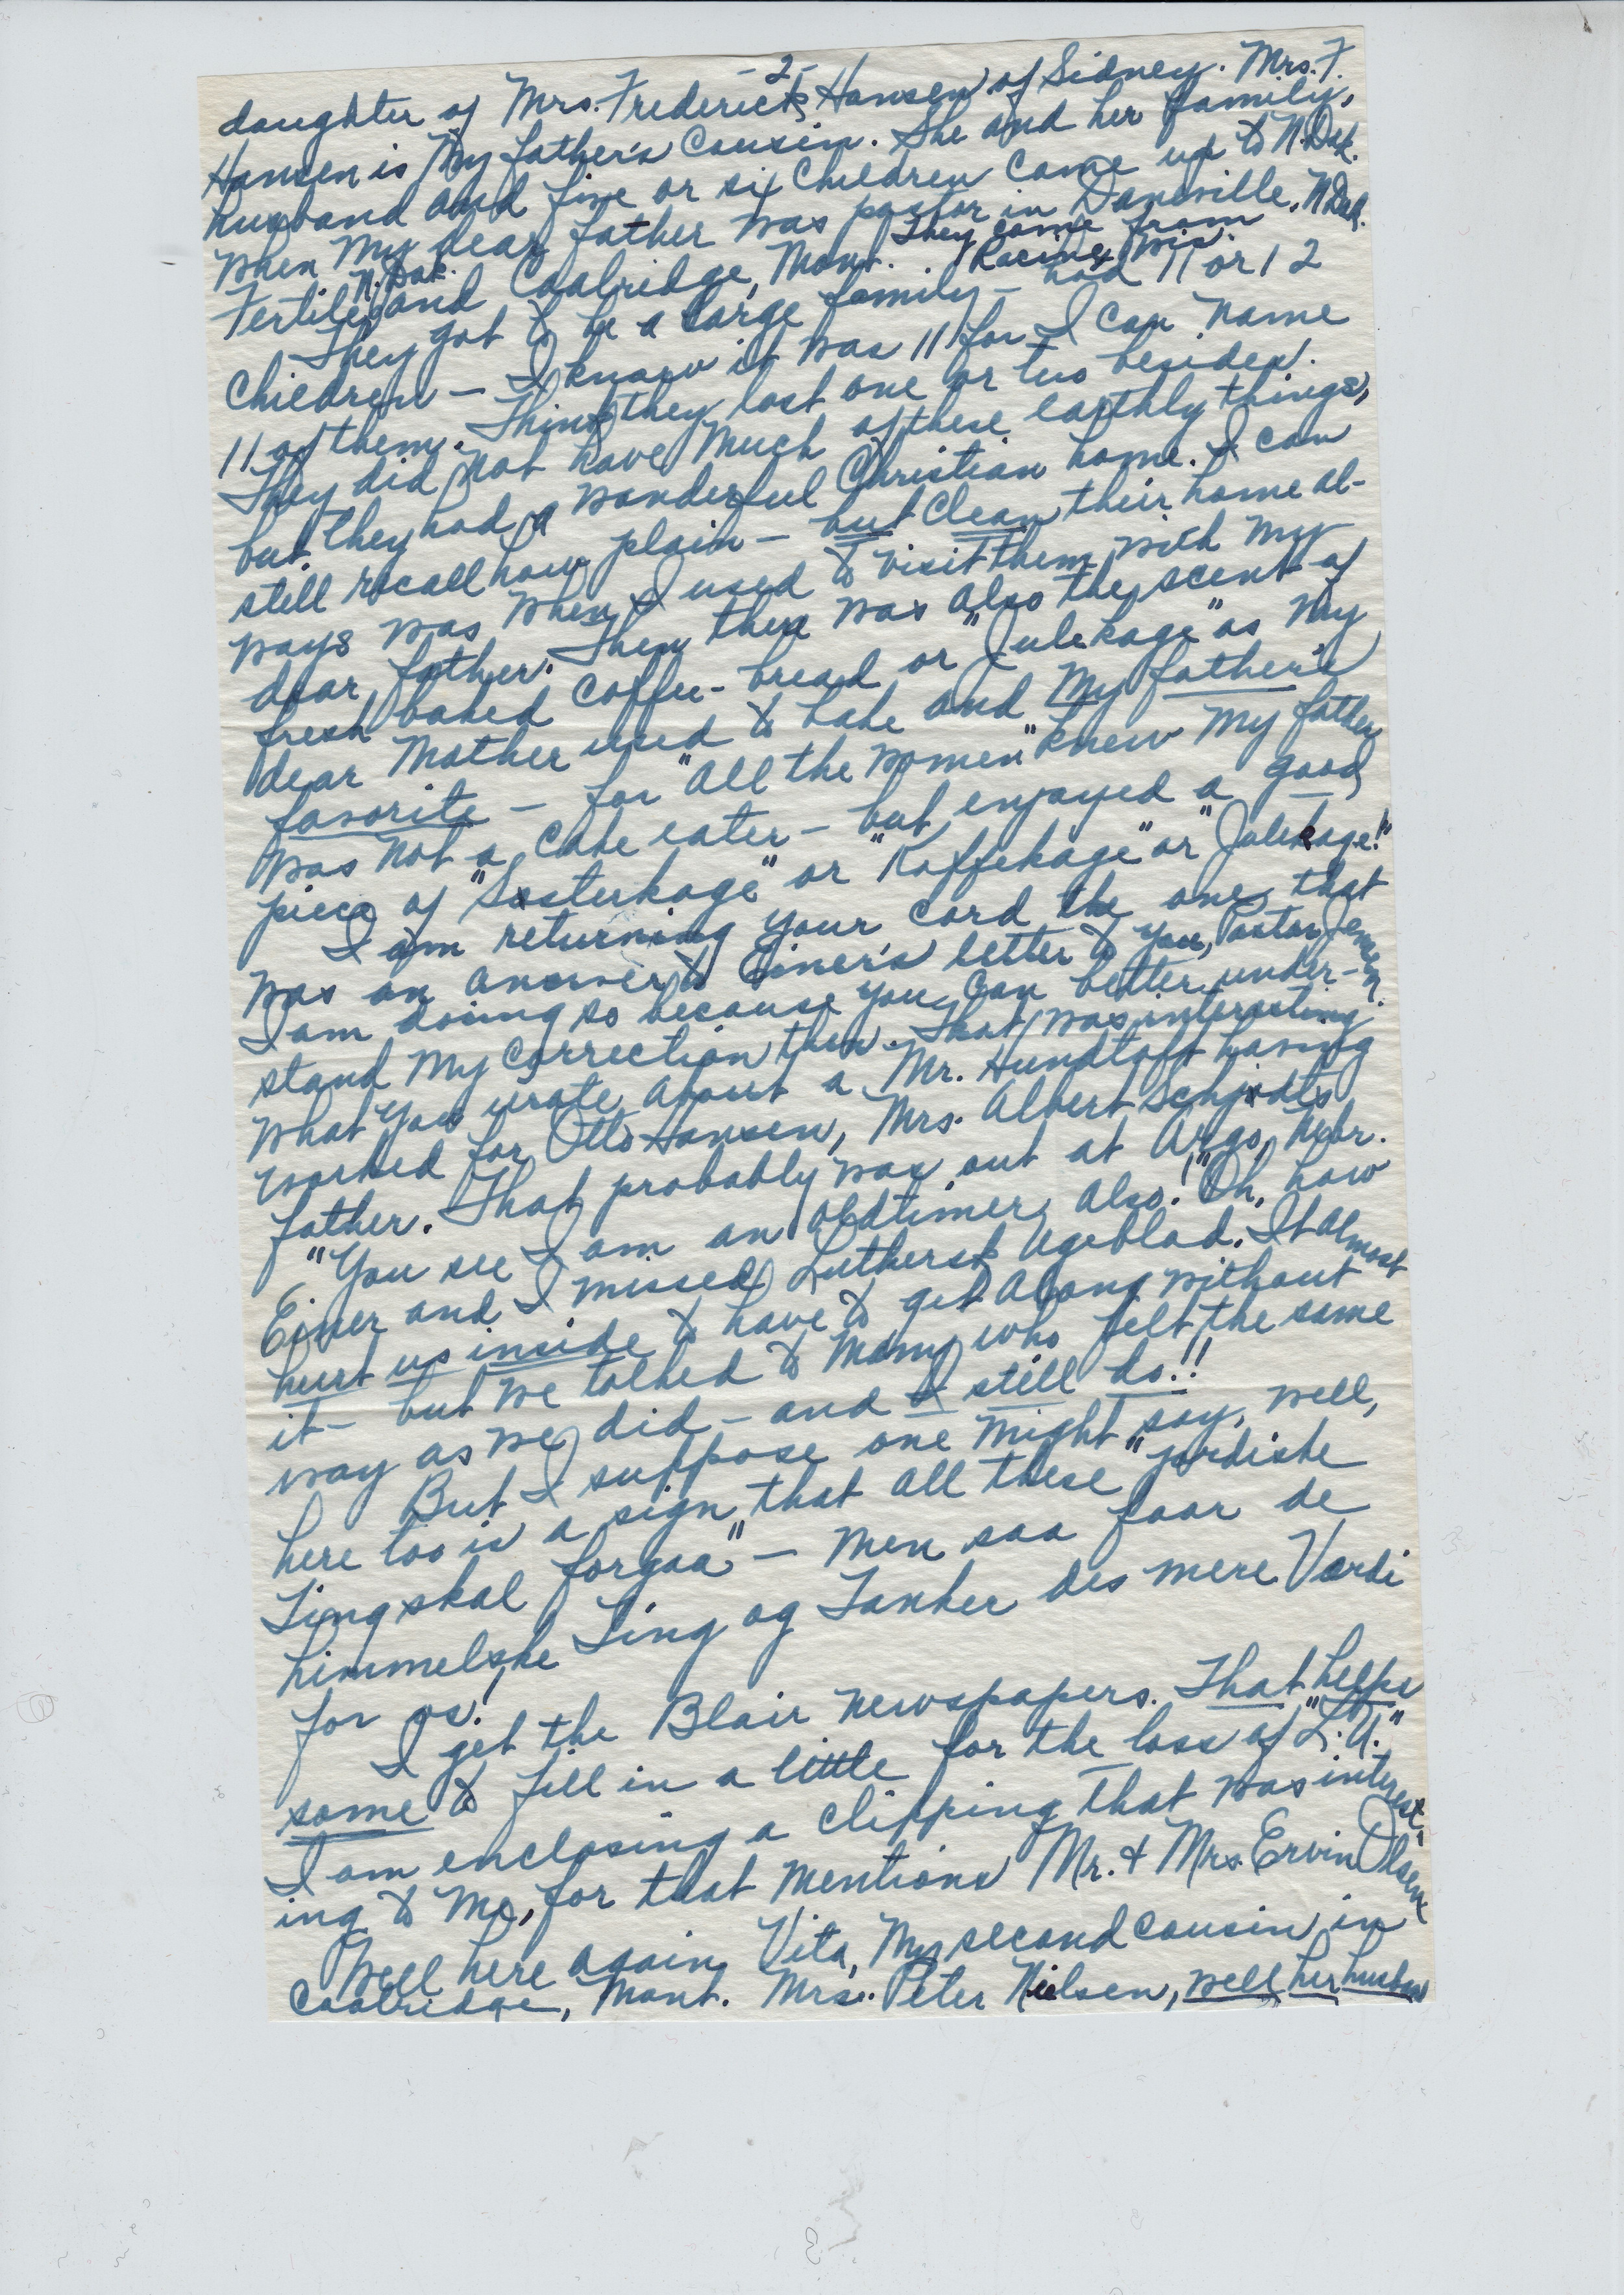 -2-
daughter of Mrs. Frederick Hansen of Sidney. Mrs. F.
Hansen is my father's cousin. She and her family,
husband and five or six children came up to N. Dak.
when my dear father was pastor in Daneville, N. Dak.
They came from
Fertile, N. Dak. and Coalridge, Mont. Racine, Wis.
They got to be a large family - had 11 or 12
children - I know it was 11 for I can name
11 of them. Think they lost one or two besides.
They did not have much of these earthly things,
but they had a wonderful Christian home. I can
still recall how plain - but clean their home al-
ways was when I used to visit them with my
dear father. Then there was also the scent of
fresh baked coffee-bread or "Julekage" as my
dear mother used to bake and my father's
favorite - for "all the women" knew my father
was not a cake eater - but enjoyed a good
piece of "Sosterkage" or "Kaffekage" or "Julekage!"
I am returning your card the one that
was an answer to Einer's letter to you, Pastor Jensen.
I am doing so because you can better under-
stand my correction then. That was interesting
what you wrote about a Mr. Hundtoft having
worked for Otto Hansen, Mrs. Albert Schjødt's
father. That probably was out at Argo, Nebr.
"You see I am an oldtimer also!" Oh, how
Einer and I missed Luthersk Ugeblad. It almost
hurt us inside to have to get along without
it - but we talked to many who felt the same
way as we did - and I still do!!
But I suppose one might say, well,
here too is a sign that all these "jordiske
Ting skal forgaa" - men saa faar de
himmelske Ting og Tanker des mere Værdi
for os!
I get the Blair newspapers. That helps
some to fill in a little for the loss of "L.U."
I am enclosing a clipping that was interest-
ing to me, for that mentions Mr. & Mrs. Ervin Olsen.
Well here again Vita, my second cousin in
Coalridge, Mont. Mrs. Peter Nielsen, well her husban